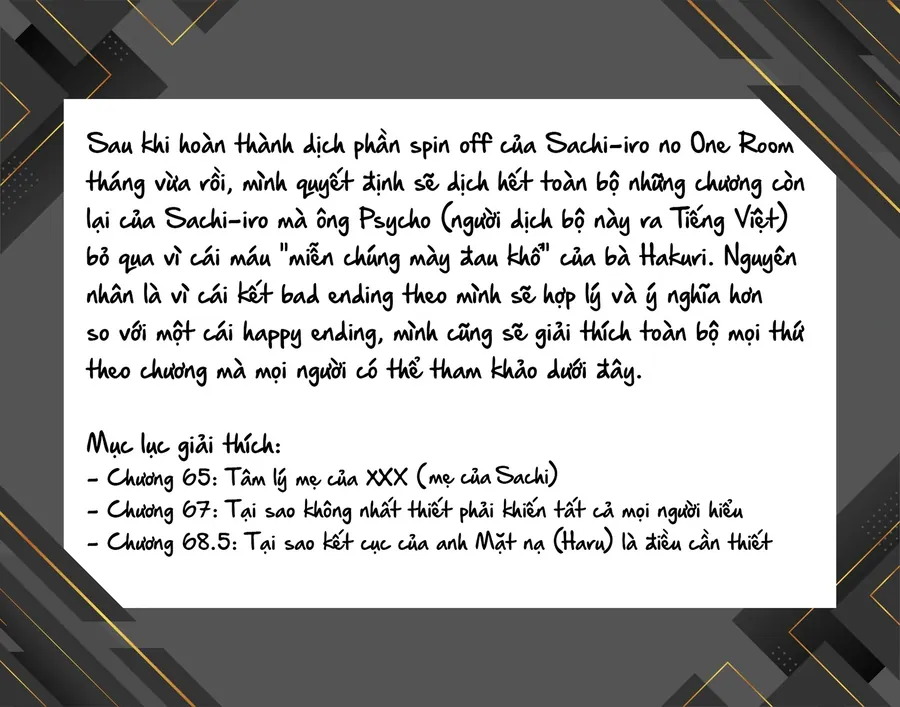 Sau khi hoàn thành dịch phần spin off của Sachi-iro no One Room
tháng vừa rồi, mình quyết định sẽ dịch hết toàn bộ những chương còn
lại của Sachi-iro mà ông Psycho (người dịch bộ này ra Tiếng Việt)
bỏ qua vì cái máu "miễn chúng mày đau khổ" của bà Hakuri. Nguyên
nhân là vì cái kết bad ending theo mình sẽ hợp lý và ý nghĩa hơn
so với một cái happy ending, mình cũng sẽ giải thích toàn bộ mọi thứ
theo chương mà mọi người có thể tham khảo dưới đây.
Mục lục giải thích:
- Chương 65: Tâm lý mẹ của XXX (mẹ của Sachi)
- Chương 67: Tại sao không nhất thiết phải khiến tất cả mọi người hiểu
- Chương 68.5: Tại sao kết cục của anh Mặt nạ (Haru) là điều cần thiết